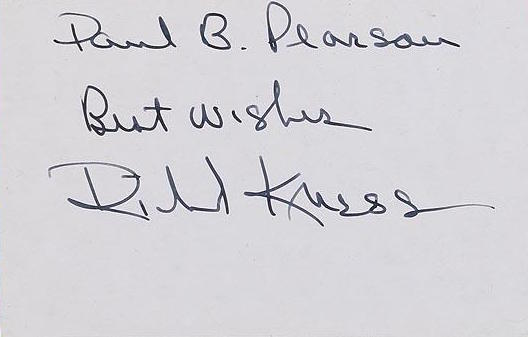 Paul B. Pearson
Best Wishes
Richard Kness